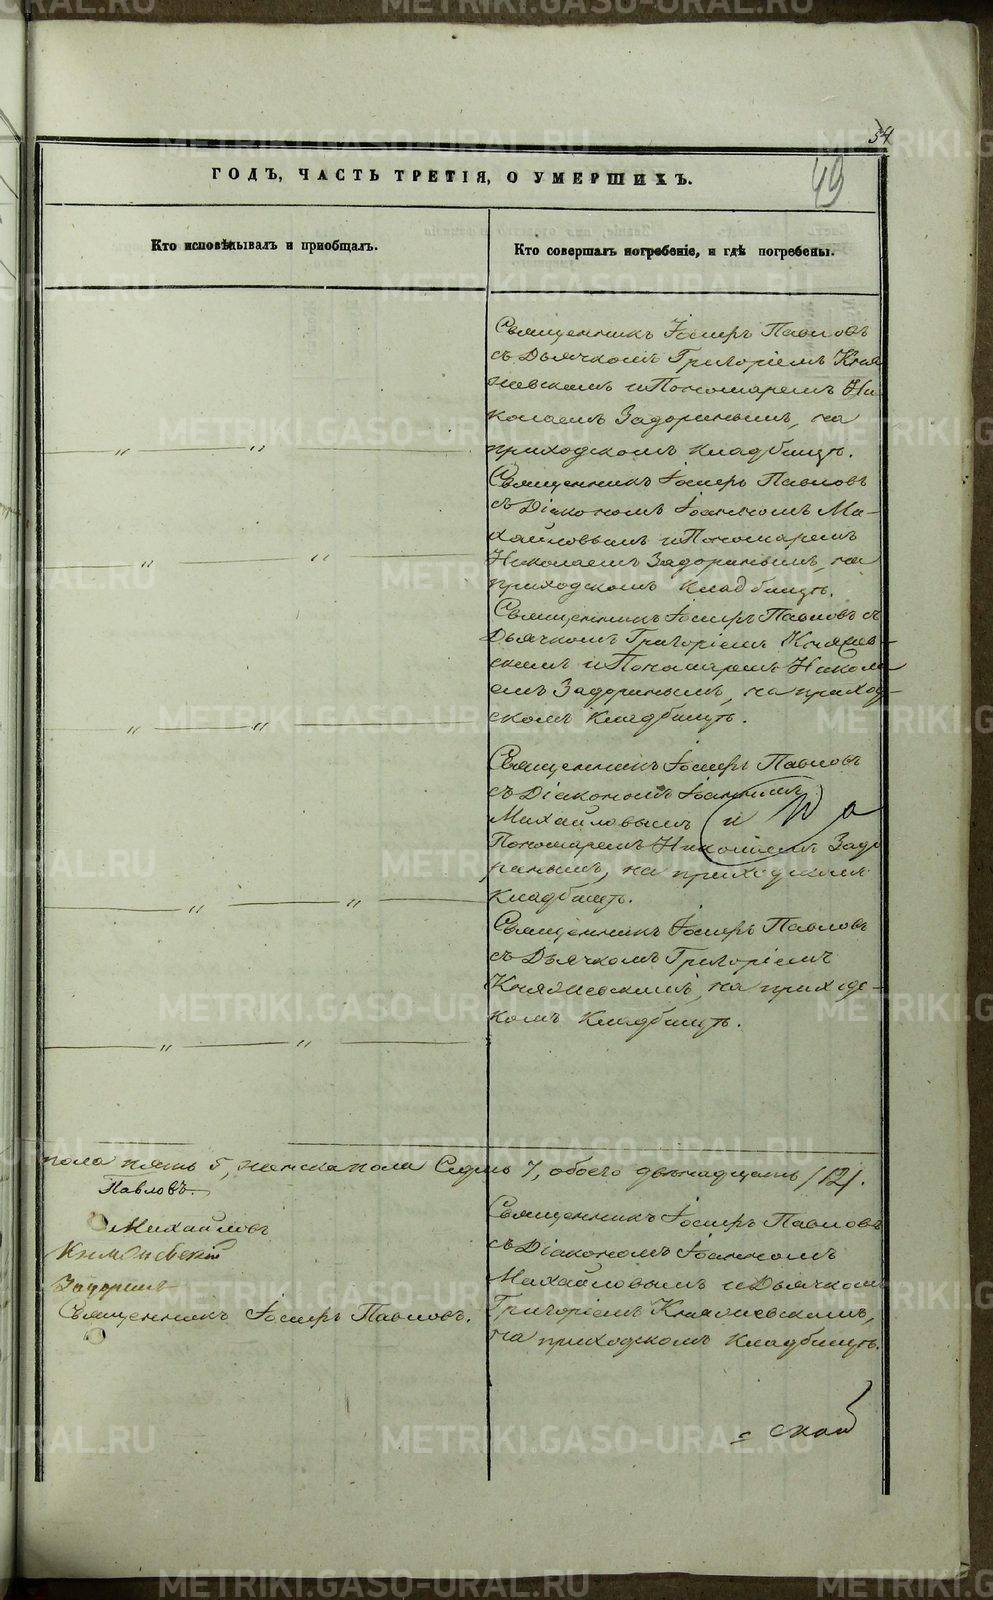 54
49
ГОДЪ, ЧАСТЬ ТРЕТІЯ, О УМЕРШИХЪ.
Кто исповѣдывалъ и пріобщалъ.
Кто совершалъ погребеніе, и гдѣ погребены.
Священникъ Іосифъ Павловъ
съ Дьячкомъ Григоріемъ Княз
невскимъ и Пономаремъ Ни
колаемъ Задоринымъ, на
приходскомъ кладбищѣ.
Священникъ Іосифъ Павловъ
съ Діакономъ Іоанномъ Ми-
хайловымъ и Пономаремъ
Николаемъ Задоринымъ, на
приходскомъ кладбищѣ.
Священникъ Іосифъ Павловъ съ
Дьячкомъ Григоріемъ Князев-
скимъ и Пономаремъ Никола
емъ Задоринымъ, на приход-
скомъ кладбищѣ.
Священникъ Іосифъ Павловъ
съ Діакономъ Іоанномъ
Михайловымъ и
Пономаремъ Николаемъ Задо
ринымъ, на приходскомъ
кладбищѣ.
Священникъ Іосифъ Павловъ
съ Дьячкомъ Григоріемъ
на приходс-
комъ кладбищѣ.
пола пять 5, женска пола Седмь 7, обоего двѣнадцать /12/.
Павловъ.
Михайловъ
Задоринъ
Священникъ Іосифъ Павловъ.
Священникъ Іосифъ Павловъ
съ Діакономъ Іоанномъ
Михайловымъ и Дьячкомъ
Григоріемъ
на приходскомъ кладбищѣ.
METRIKI.GASO-URAL.RU